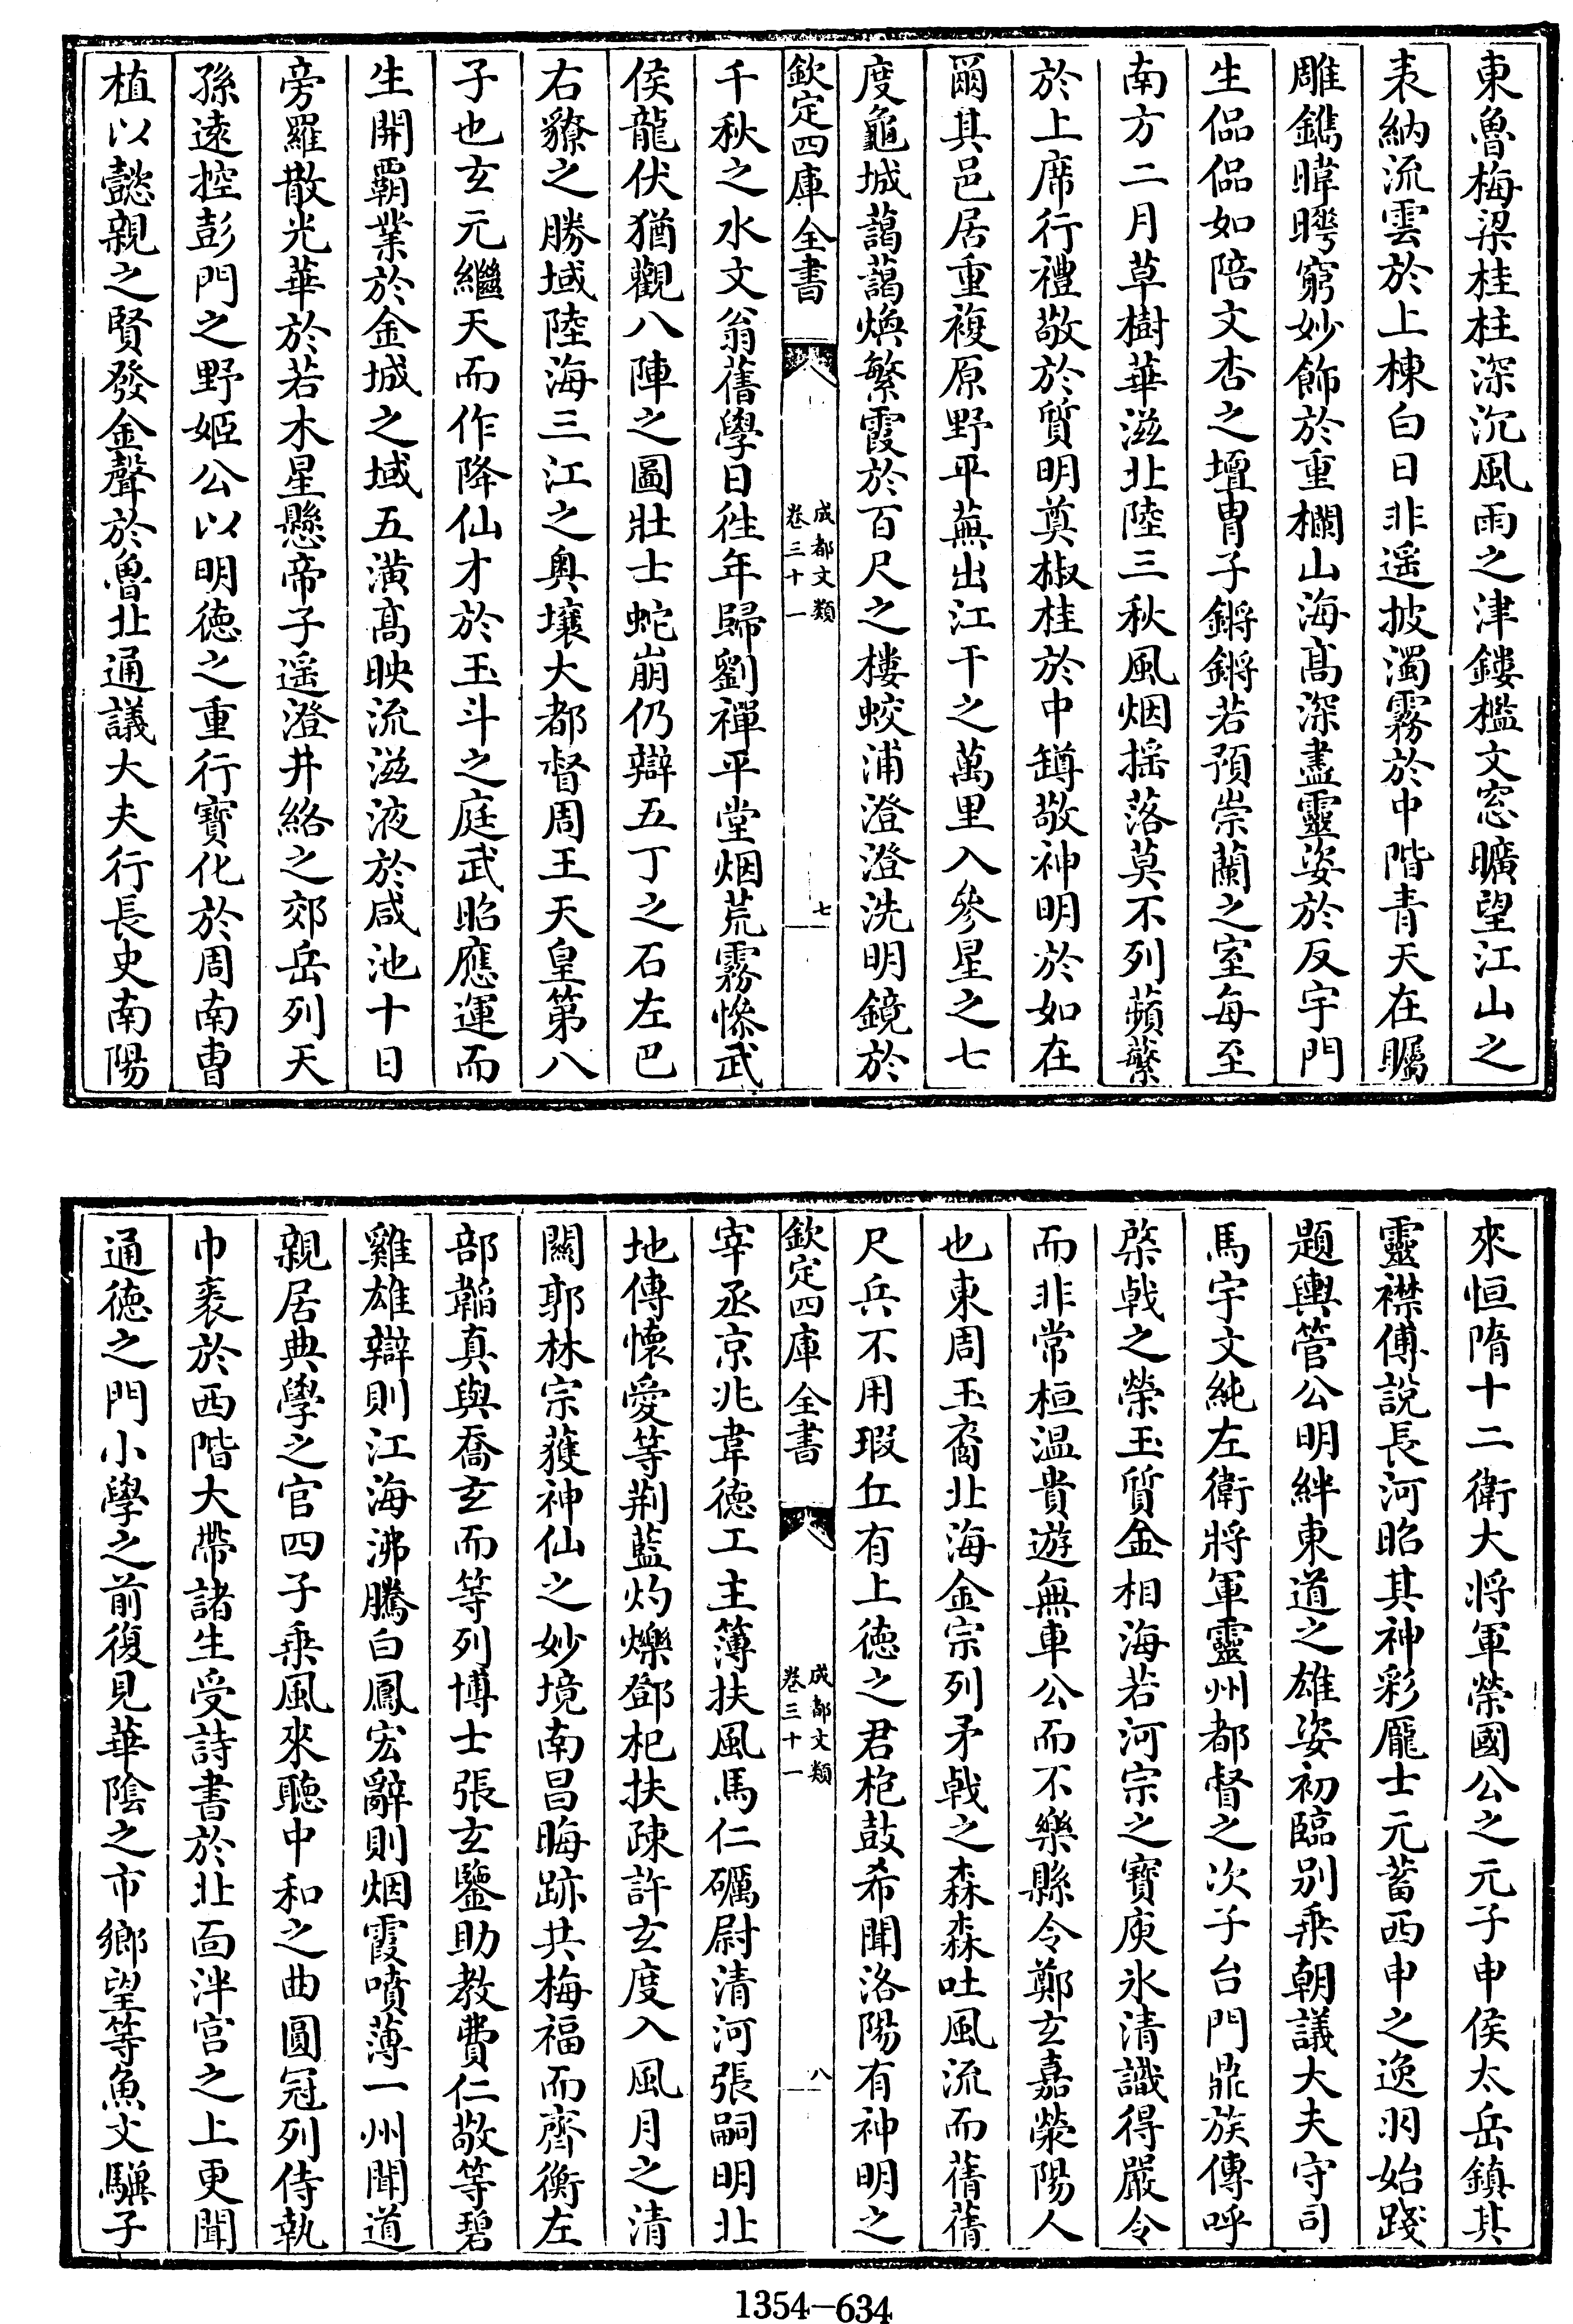 東魯梅梁桂柱深沉風雨之津鏤檻文窓曠望江山之
表納流雲於上棟白日非遥披濁霧於中階青天在矚
雕鐫暐曖窮妙飾於重欄山海髙深盡靈姿於反宇門
生偘偘如陪文杏之壇胄子鏘鏘若預崇蘭之室每至
南方二月草樹華滋北陸三秋風烟揺落莫不列蘋蘩
於上席行禮敬於質明奠椒桂於中罇敬神明於如在
爾其邑居重複原野平蕪出江干之萬里入參星之七
度龜城藹藹煥繁霞於百尺之樓蛟浦澄澄洗明鏡於
欽定四庫全書
成都文類
卷三十一
七
千秋之水文翁舊學日徃年歸劉禪平堂烟荒霧慘武
侯龍伏猶觀八陣之圖壯士蛇崩仍辯五丁之石左巴
右獠之勝域陸海三江之奥壤大都督周王天皇第八
子也玄元繼天而作降仙才於玉斗之庭武昭應運而
生開覇業於金城之域五潢髙映流滋液於咸池十日
旁羅散光華於若木星懸帝子遥澄井絡之郊岳列天
孫遠控彭門之野姬公以明德之重行寳化於周南曹
植以懿親之賢發金聲於魯北通議大夫行長史南陽
來恒隋十二衛大將軍榮國公之元子申侯太岳鎮其
靈襟傅說長河昭其神彩龎士元蓄西申之逸羽始踐
題輿管公明絆東道之雄姿初臨别乗朝議大夫守司
馬宇文純左衛將軍靈州都督之次子台門鼎族傳呼
棨㦸之榮玉質金相海若河宗之寳庾氷清識得嚴令
而非常桓温貴遊無車公而不樂縣令鄭玄嘉滎陽人
也東周玉裔北海金宗列矛㦸之森森吐風流而蒨蒨
尺兵不用瑕丘有上徳之君枹鼓希聞洛陽有神明之
欽定四庫全書
成都文類
卷三十一
八
宰丞京兆韋德工主簿扶風馬仁礪尉清河張嗣明北
地傳懷愛等荆藍灼爍鄧杞扶疎許玄度入風月之清
關郭林宗蓰神仙之妙境南昌晦跡共梅福而齊衡左
部韜真與喬玄而等列博士張玄鑒助教費仁敬等碧
雞雄辯則江海沸騰白鳳宏辭則烟霞噴薄一州聞道
親居典學之官四子乗風來聽中和之曲圓冠列侍執
巾袠於西階大帶諸生受詩書於北面泮宫之上更聞
通徳之門小學之前復見華陰之市鄉望等魚文驥子
1354-634